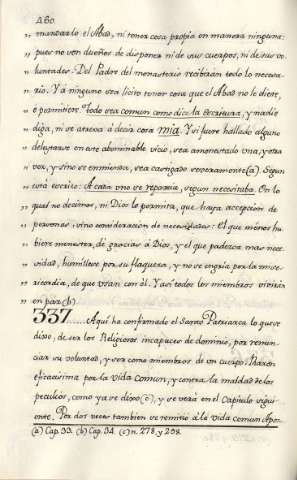 460.
„ mandarlo el Abas, ni tener cosa propia en manera ninguna:
„ pues no ven dueños de disponer ni de sus cuerpos, ni de sus vo
„ luntades. Del Padre del monasterio recibirán todo lo necesa-
„ rio. Y à ninguno sea lícito tener cosa que el Abas no le diere,
„ o permitiere. Todo sea comun como dice la escritura, y nadie
„ diga, ni se atreva à decir cosa mia. Y si fuere hallado alguno
„ deleytarse en este abominable vicio, sea amonestado una, y otra
„ vez, y si no se enmienda, sea castigado severamente (a). Segun
„ está escrito: A cada uno se repartia, segun necesitaba. En lo
„ qual no decimos, ni Dios lo permita, que haya accepcion de
„ personas, sino consideracion de necesidades: El que menos hu
„ biere menester, dé gracias à Dios, y el que padezca mas nece
„ sidad, humillese por su flaqueza, y no se engria por la mise-
„ ricordia, de que usan con él. Y asi todos los miembros vivirán
„ en paz (b)
337..... Aquí ha confirmado el Santo Patriarca lo que ve
dixo, de ser los Religiosos incapaces de dominio, por renun-
ciar su voluntad, y ser como miembros de un cuerpo. Razon
eficacísima por la vida comun, y contra la maldad de los
peculios, como ya se dixo (c), y se verá en el Capitulo sigui-
ente. Por dos veces tambien se remitió à la vida comun Apos-
(a) Cap. 33. (b) Cap. 34. (c) n. 278. y 298.